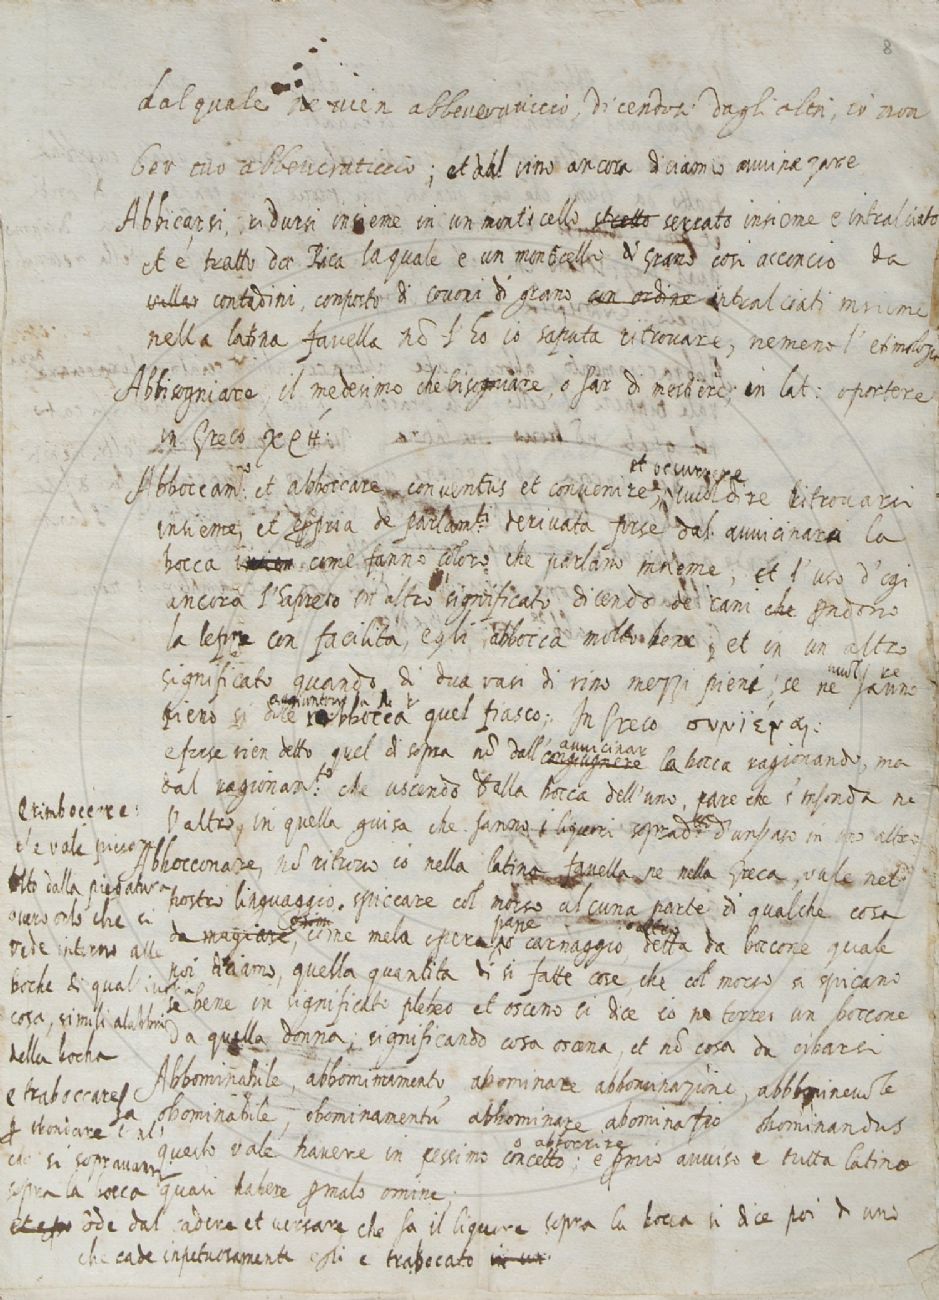 8
dal quale ne vien abbeveraticcio, dicendosi dagli altri, io non
bev tuo abbeveraticcio; et dal vino ancora diciamo avvinazzare
Abbicarsi, ridursi insieme in un monticello serrato insieme e intralciato
et é tratto da Bica la quale e un monticello di grano cosi acconcio da
contadini, composto di covoni di grano con ordine intralciati insieme
nella latina favella nō l'ho io saputa ritrovare, nemeno l'etimologia
Abbisogniare, il medesimo che bisogniare, o far di mestiere; in lat: oportere
in Greco χρή:
Abboccam.to et abboccare conventus et convenire, et occurrere vuol dire ritrovarsi
insieme, et è propria de parlam.ti derivata forse dal avvicinarsi la
bocca come fanno coloro che parlano insieme; et l'uso d'ogi
ancora l'espreso in altro significato, dicendo de cani che prendono
la lepre con facilita, egli abbocca molto bene; et in un altro
significato quando di dua vasi di vino mezzi pieni, se ne vuol fare uno
pieno si dice rabbocca quel fiasco; In Greco
e forse vien detto quel di sopra nō dall' congiugnere avvicinar la bocca ragionando, ma
dal ragionam.to che uscendo della bocca dell'uno, pare che s'infonda ne
l'altro, in quella guisa che fanno i liquori d'un vaso in uno altro
Abbocconare, nō ritruvo io nella latina favella ne nella Greca, vale nel
nostro linguaggio, spiccare col morso alcuna parte di qualche cosa
da mangiare, come mela pera pane o carnaggio, detta da boccone quale
noi diciamo, quella quantita di si fatte cose, che col morso si spicano
se bene in significato plebeo et osceno si dice io ne torrei un boccone
da quella donna; significando cosa oscena, et nō cosa da cibarsi
Abbominabile, abbominamento abominare abbominazione, abbominevole
abominabile, abominamentū abhominare abominatio abominandus
questo vale havere in pessimo concetto, o abborrire; e p mio avviso e tutta latina
quasi habere p malo omine;
ōde dal cadere et versare che fa il liquore sopra la bocca si dice poi d uno
che cade inpetuosamente egli e trabocato
e rimboccare:
ch'e vale
dalla piegatura
overo orlo che si
vede intorno alle
boche di qual
cosa, simili a labbri
della bocha
e traboccare
sopra la bocca